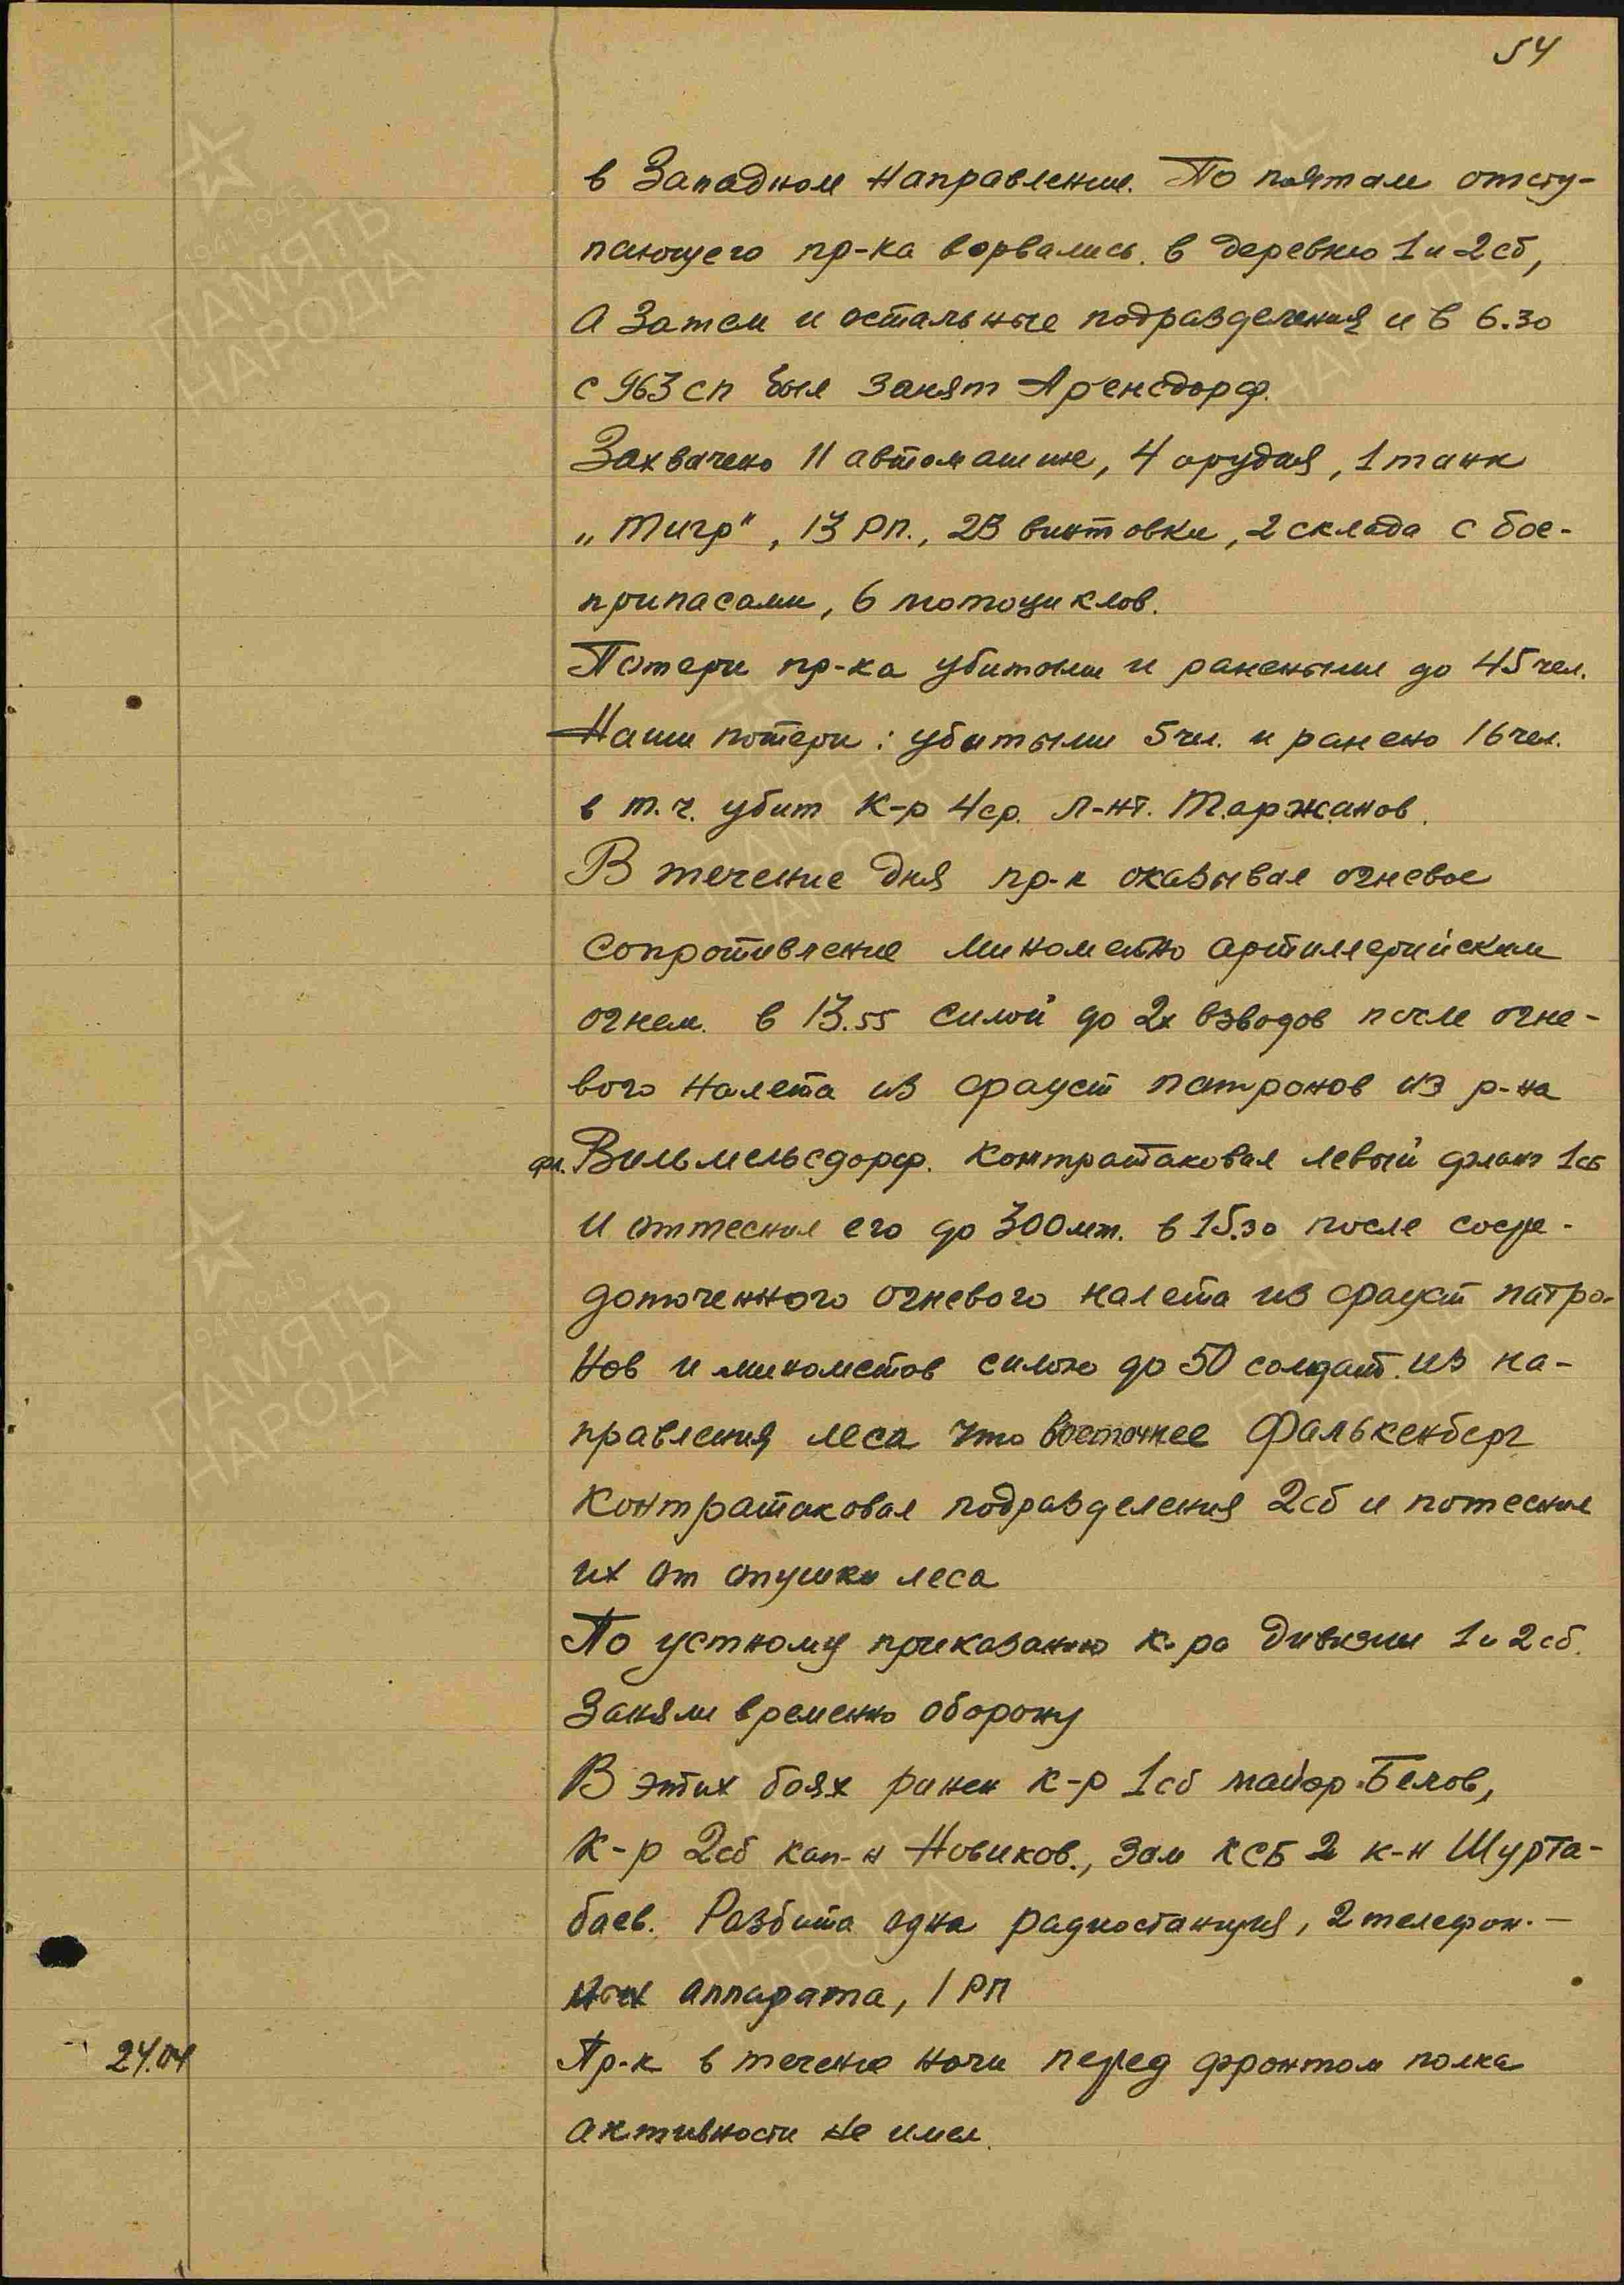 54
в Западном направлении. По пятам отсту-
пающего пр-ка ворвались в деревню 1 и 2 сб,
а затем и остальные подразделения и в 6.30
с 963 сп был занят Аренсдорф.
Захвачено 11 автомашин, 4 орудия, 1 танк
„Тигр", 13 РП., 23 винтовки, 2 склада с бое-
припасами, 6 мотоциклов.
Потери пр-ка убитыми и ранеными до 45 чел.
Наши потери: убитыми 5 чел. и ранено 16 чел.
в т.ч. убит к-р 4ср. л-нт. Таржанов.
В течение дня пр-к оказывал огневое
сопротивление минометно артиллерийским
огнем. в 13.55 силой до 2х взводов после огне-
вого налета из фауст патронов из р-на
фл. Вильмельсдорф. контратаковал левый фланг 1сб
и оттеснил его до 300 мт. в 15.30 после сосре-
доточенного огневого налета из фауст патро-
нов и минометов силою до 50 солдат из на-
правления леса что восточнее Фалькенберг
контратаковал подразделения 2сб и потеснил
их от опушки леса
По устному приказанию к-ра дивизии 1 и 2 сб.
Заняли временно оборону
В этих боях ранен к-р 1сб майор Белов,
к-р 2сб кап-н Новиков., зам КСБ 2 к-н Шурта-
баев. Разбита одна радиостанция, 2 телефон.-
ных аппарата, 1 РП
24.04
Пр-к в течение ночи перед фронтом полка
активности не имел.
ПАМЯТЬ
НАРОДА